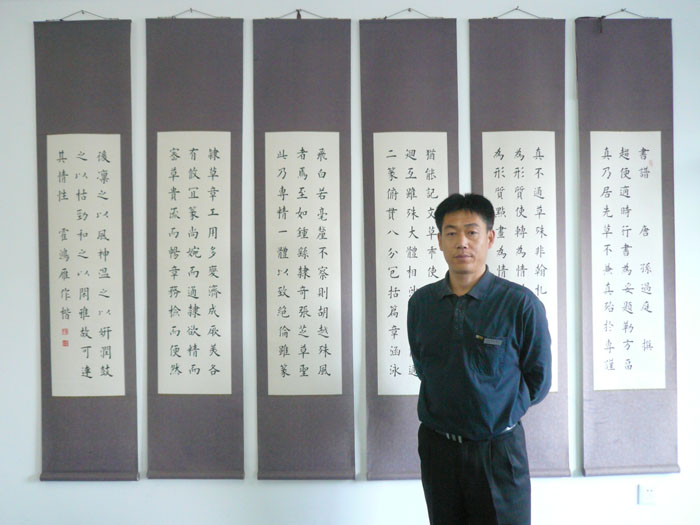 書譜 唐 孫過庭 撰
趨變適時行書為要題勒方畐
真乃居先草不兼真殆於專謹
真不通草殊非翰札
為形質使轉為情
為形質點畫為情
猶能記文草乖使
迴互雖殊大體相涉
二篆俯貫八分包括篇章涵泳
飛白若毫釐不察則胡越殊風
者焉至如鍾繇隸奇張芝草聖
此乃專情一體以致絕倫雖篆
隸草章工用多變濟成厥美各
有攸宜篆尚婉而通隸欲精而
密草貴流而暢章務檢而便然
後凜之以風神溫之以妍潤鼓
之以枯勁和之以閑雅故可達
其情性 霍鴻雁作楷